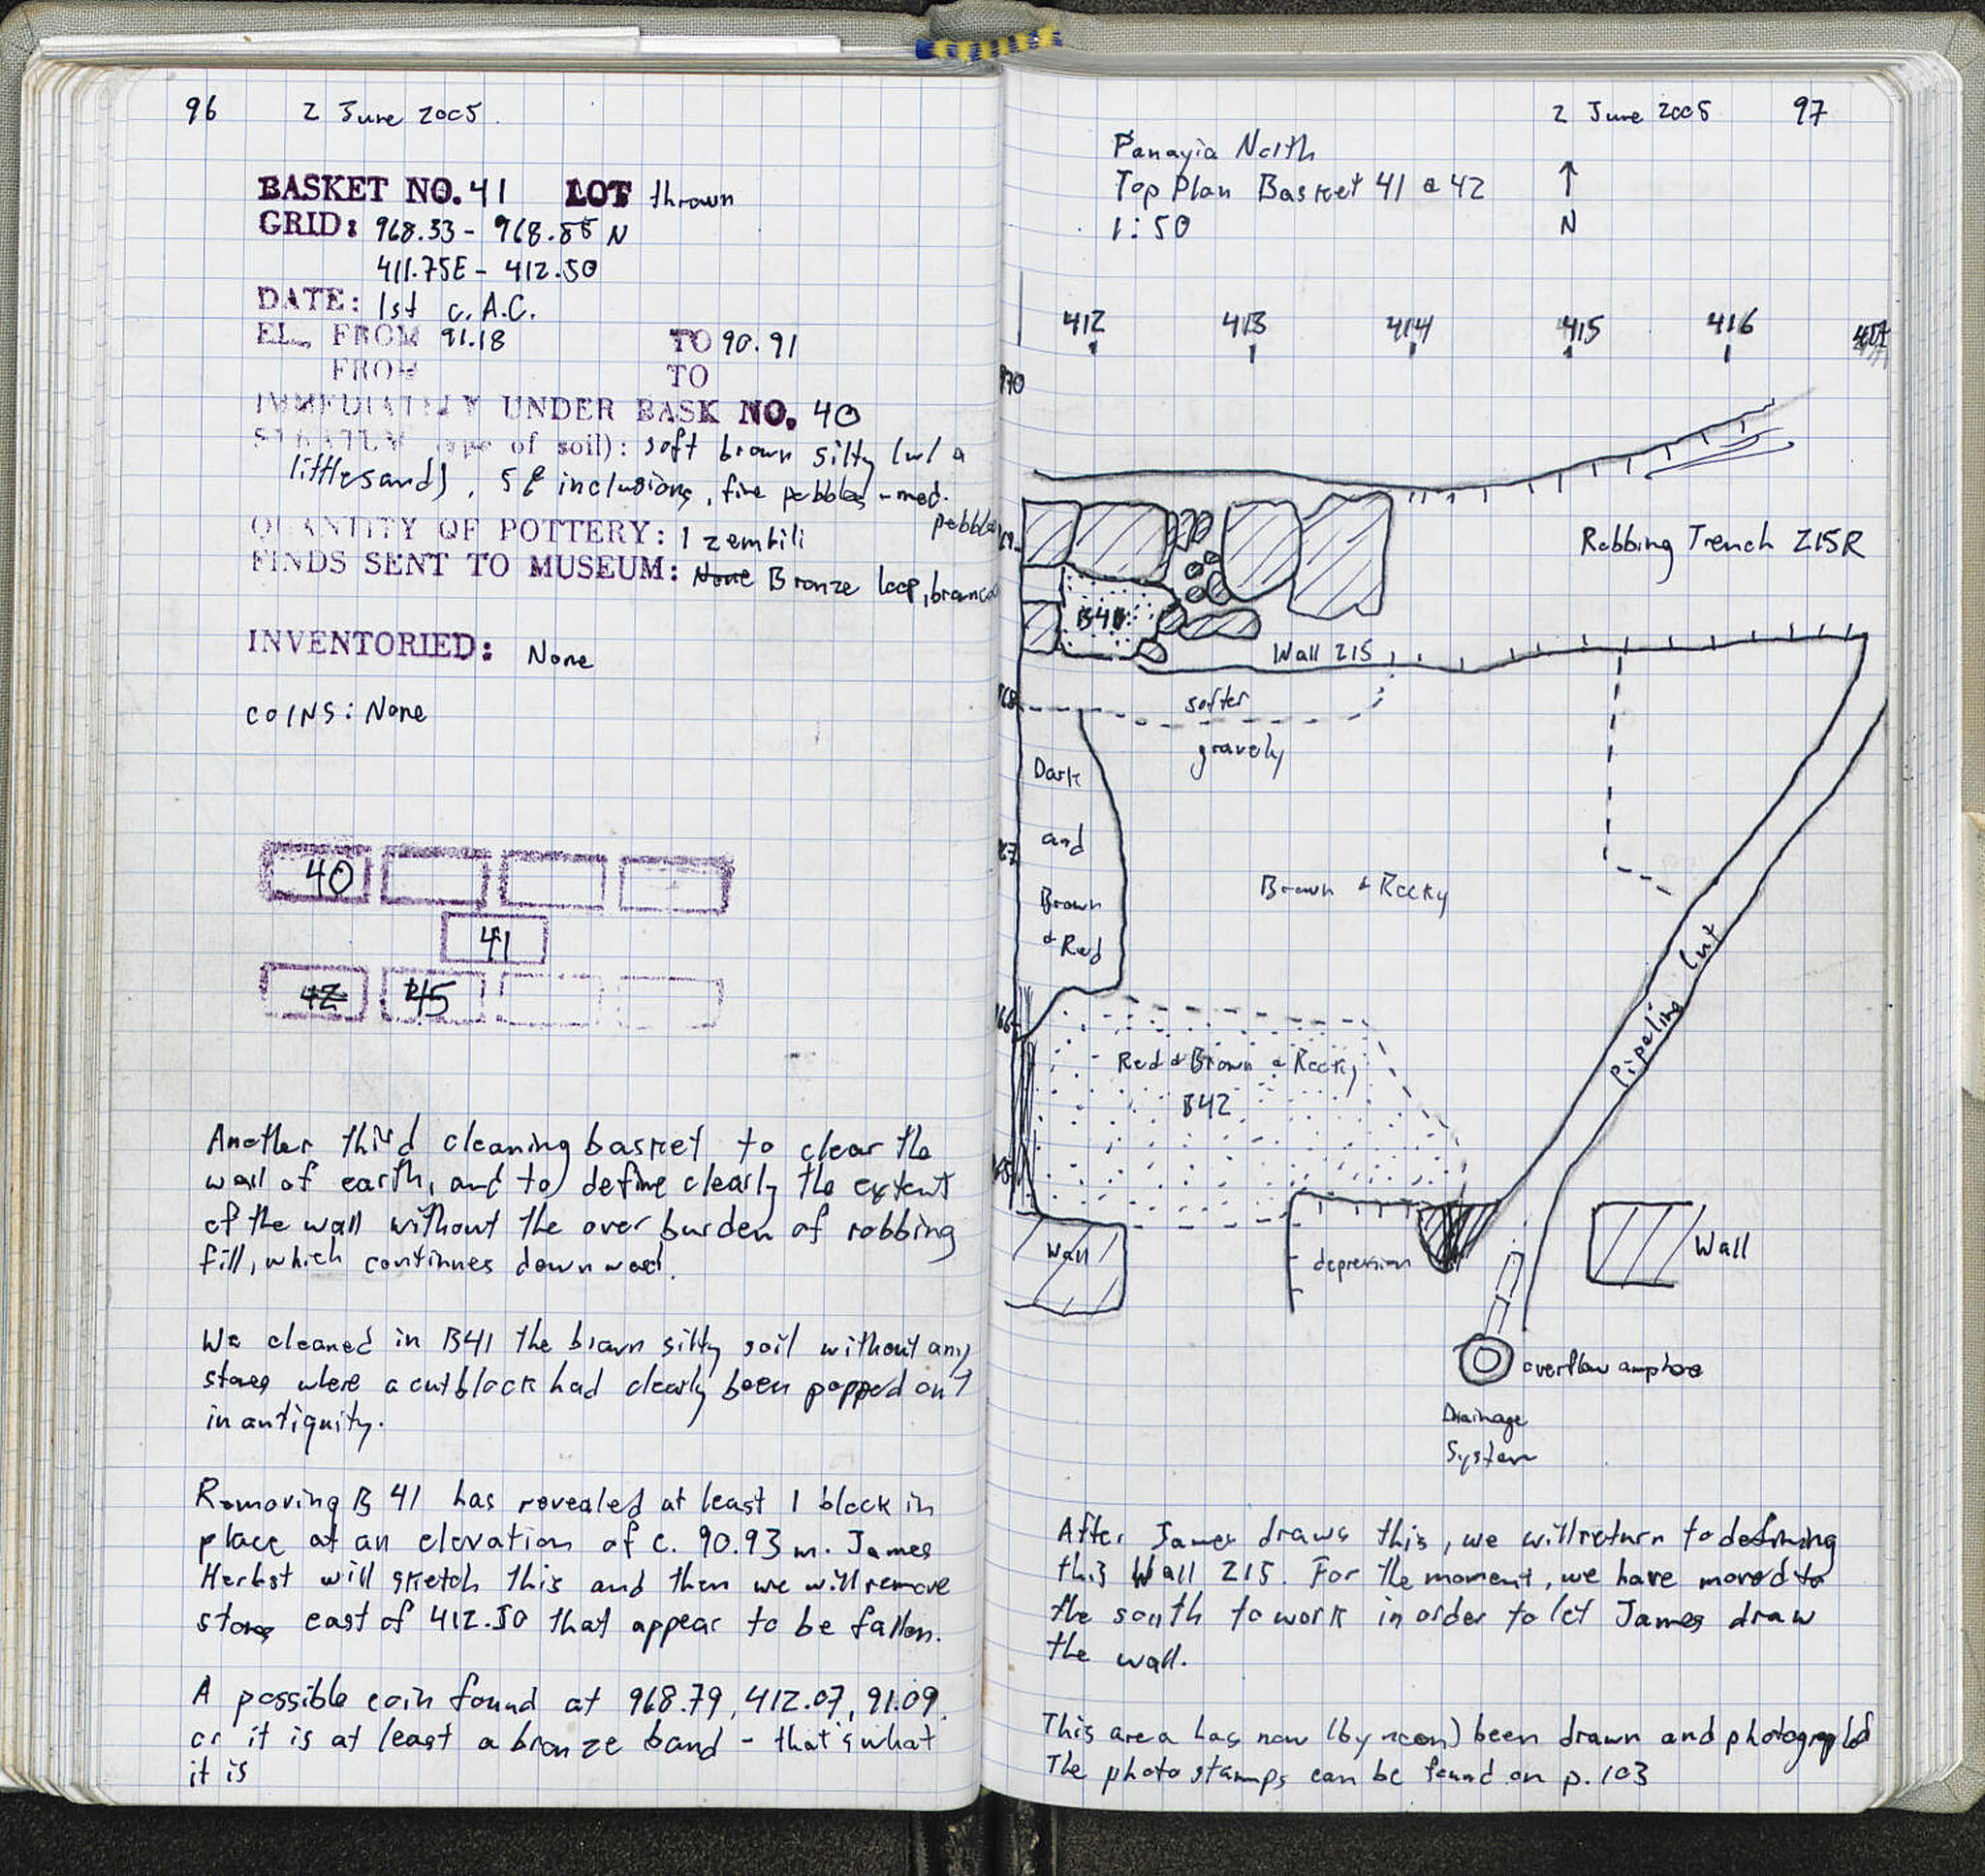 96 2 June 2005
BASKET NO. 41 LOT thrown
GRID: 968.33 - 968.88 N
411.75E - 412.50
DATE: 1st c. A.C.
EL. FROM 91.18 TO 90.91
FROM TO
IMMEDIATELY UNDER BASK NO. 40
STRATUM (type of soil): soft brown silty (w/ a
little sand), 5% inclusions, fine pebbles - med.
pebbles
QUANTITY OF POTTERY: 1 zembili
FINDS SENT TO MUSEUM: None Bronze loop, bronze
INVENTORIED: None
COINS: None
40
41
42 45
Another third cleaning basket to clear the
wall of earth, and to define clearly the extent
of the wall without the over burden of robbing
fill, which continues downward.
We cleaned in B41 the brown silty soil without any
stones where a cut block had clearly been popped out
in antiquity.
Removing B 41 has revealed at least 1 block in
place at an elevation of c. 90.93 m. James
Herbst will sketch this and then we will remove
stones east of 412.50 that appear to be fallen.
A possible coin found at 968.79, 412.07, 91.09.
or it is at least a bronze band - that's what
it is
2 June 2005 97
Panayia North
Top Plan Basket 41 & 42
1:50
N
412 413 414 415 416
970
Robbing Trench 215R
B41
Wall 215
968
softer
gravely
Dark
and
Brown
& Red
Brown & Rocky
Pipeline Cut
Red & Brown & Rocky
B42
Wall
depression
Wall
overflow amphora
Drainage
System
After James draws this, we will return to defining
this Wall 215. For the moment, we have moved to
the south to work in order to let James draw
the wall.
This area has now (by noon) been drawn and photographed
The photo stamps can be found on p. 103